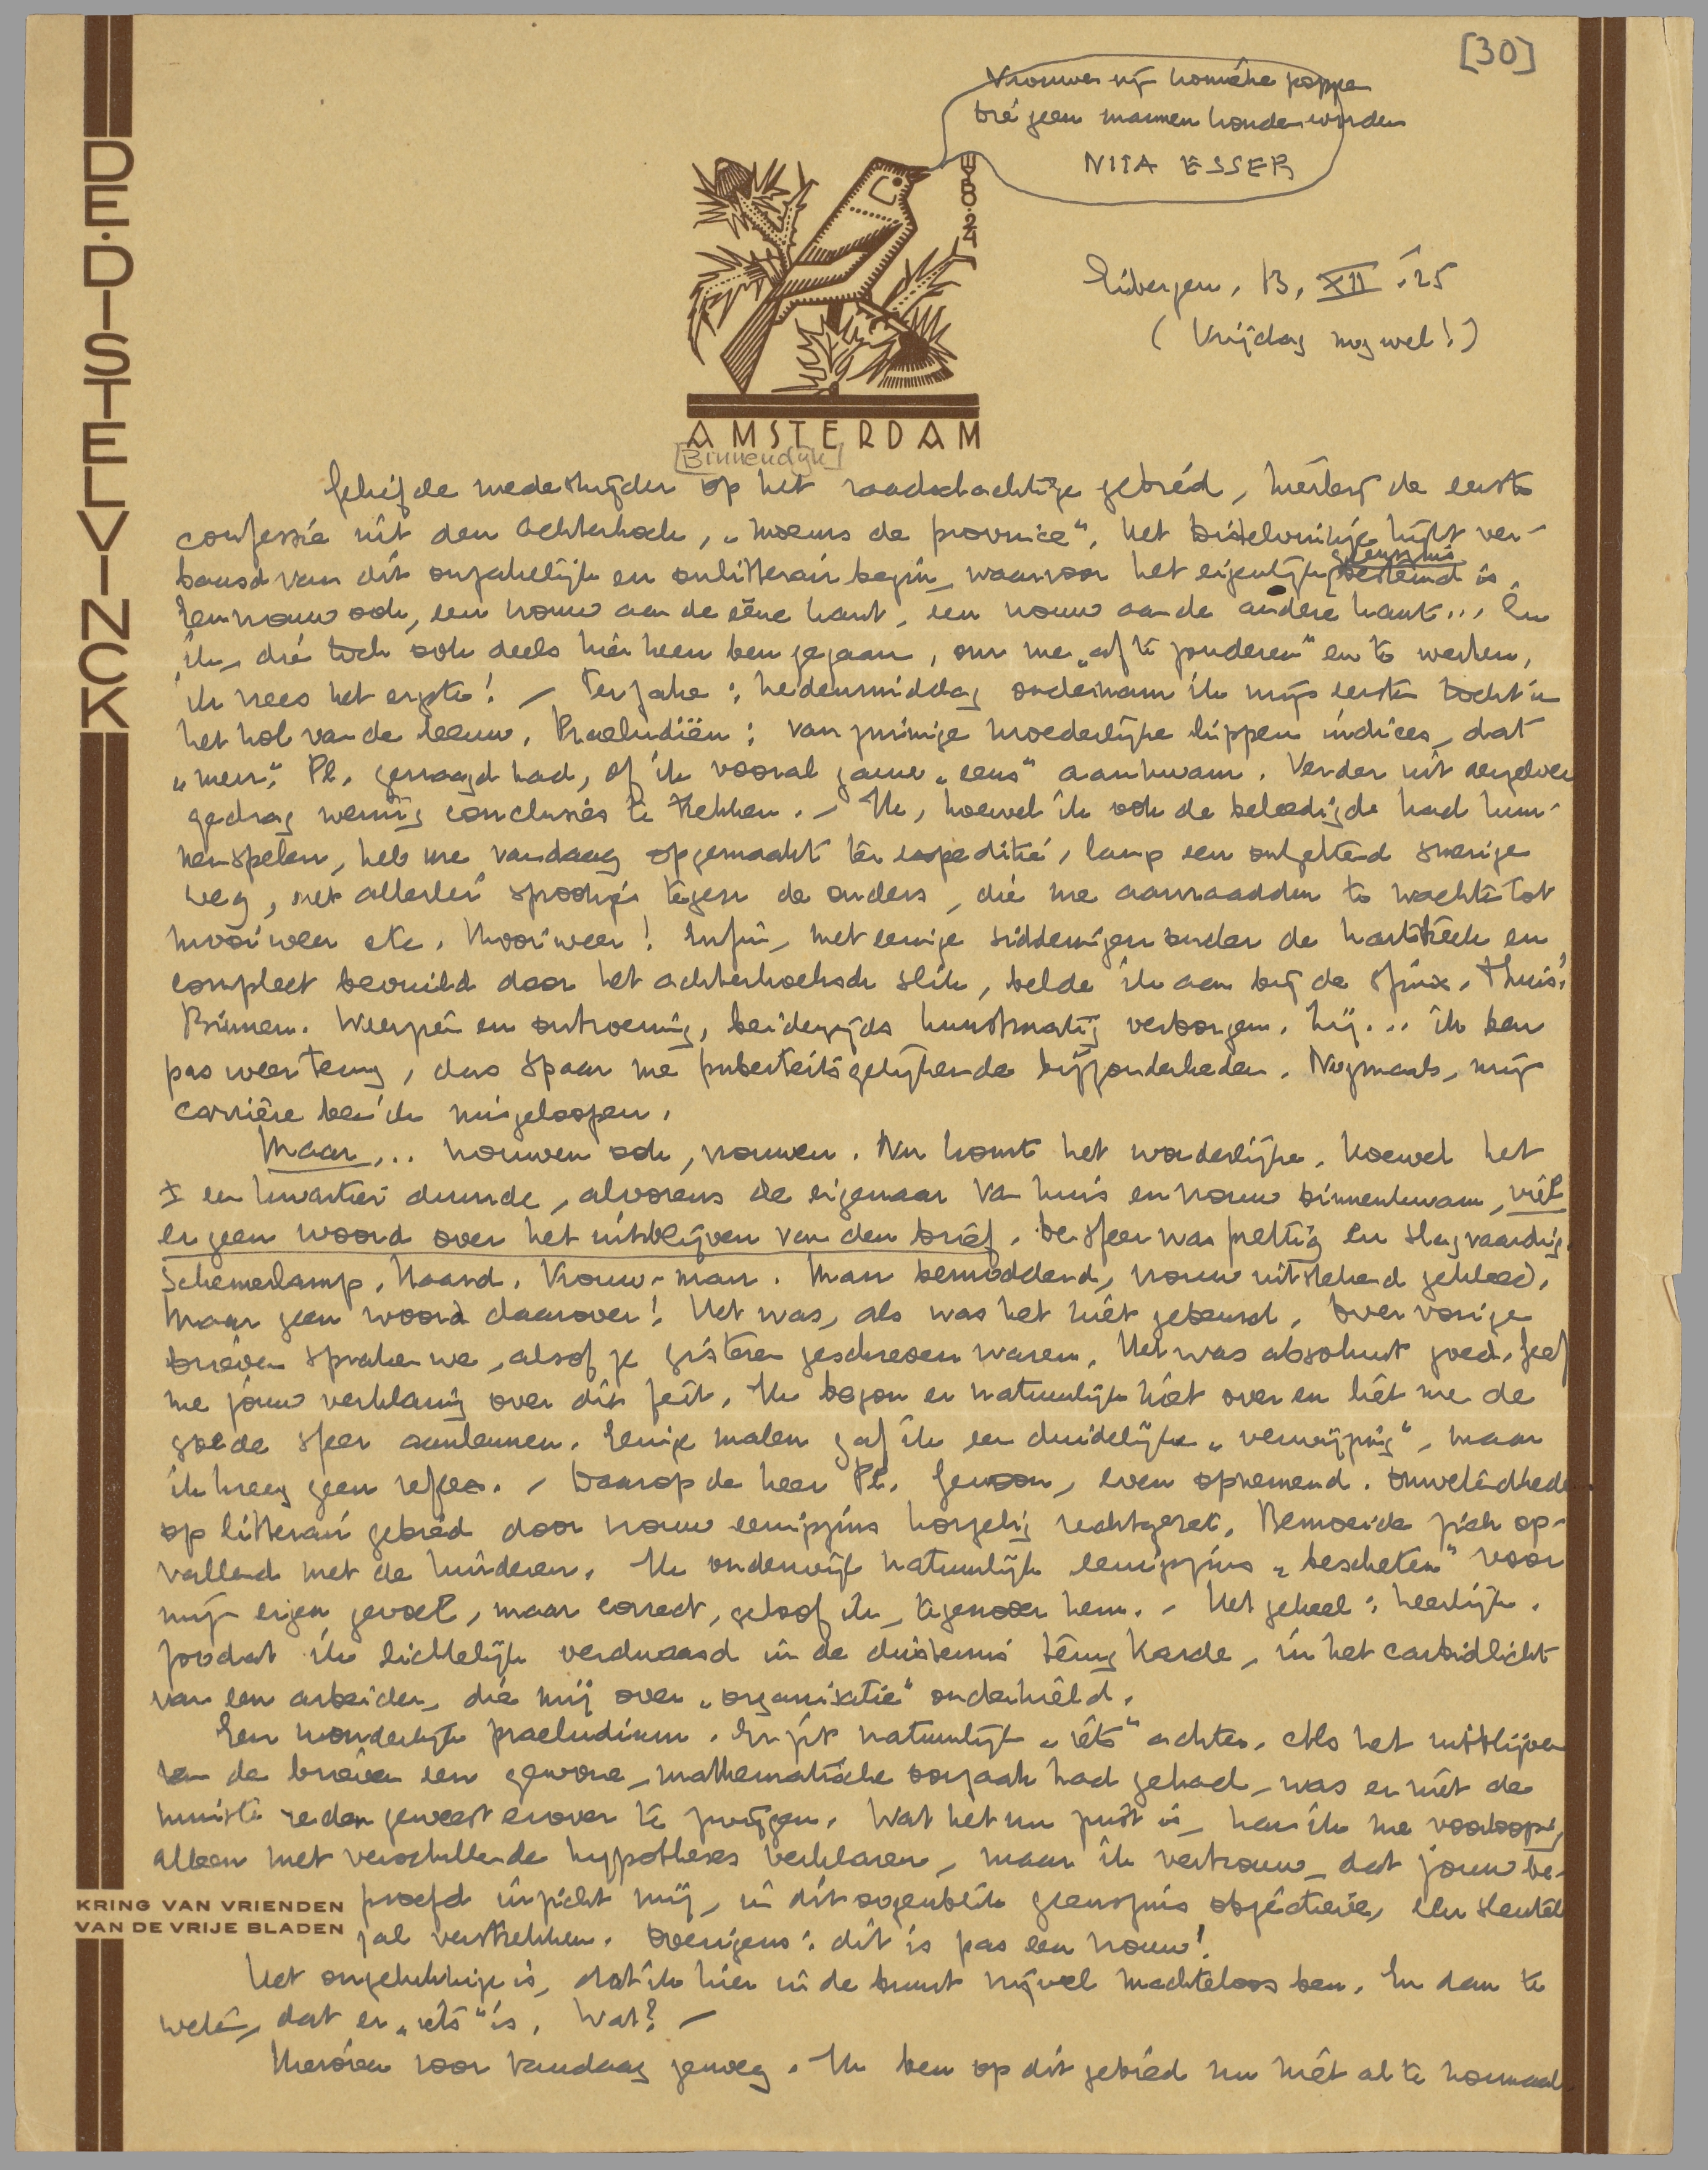 [30]
Vrouwen zijn komieke poppen
die geen mannen konden worden
NITA ESSER
W·B·O·24
DE·DISTELVINCK
Eibergen, 13, XII '25
(Vrijdag nog wel!)
AMSTERDAM
[Binnendijk]
Geliefde medestrijder op het raadselachtige gebied, hierbij de eerste
confessie uit den Achterhoek, „moeurs de province". Het Distelvinkje kijkt ver-
baasd van dit onzakelijk en onlitterair begin, waarvoor het eigenlijk geenszins bestemd is.
Een vrouw ook, een vrouw aan de eene kant, een vrouw aan de andere kant... En
ik, die toch ook deels hier heen ben gegaan, om me „af te zonderen" en te werken,
ik vrees het ergste! – Ter zake: hedenmiddag ondernam ik mijn eerste tocht in
het hol van de leeuw. Praeludiën: van zuinige moederlijke lippen indices, dat
„mevr." Pl. gevraagd had, of ik vooral gauw „eens" aankwam. Verder uit derzelver
gedrag weinig conclusies te trekken. – Ik, hoewel ik ook de beleedigde had kun-
nen spelen, heb me vandaag opgemaakt ter expeditie, langs een ontzettend smerige
weg, met allerlei smoesjes tegen de ouders, die me aanraadden te wachten tot
mooi weer etc. Mooi weer! Enfin, met eenige sidderingen onder de hartstreek en
compleet bevuild door het achterhoeksche slik, belde ik aan bij de Sfinx. Thuis!
Binnen. Weerzien en ontroering, beiderzijds kunstmatig verborgen. Hij... ik ben
pas weer terug, dus spaar me puberteitsgelijkende bijzonderheden. Nogmaals, mijn
carrière ben ik misgeloopen.
Maar... vrouwen ook, vrouwen. Nu komt het wonderlijke. Hoewel het
± een kwartier duurde, alvorens de eigenaar van huis en vrouw binnenkwam, viel
er geen woord over het uitblijven van den brief. De sfeer was prettig en slagvaardig.
Schemerlamp. Haard. Vrouw-man. Man bemodderd, vrouw uitstekend gekleed.
Maar geen woord daarover! Het was, als was het niet gebeurd. Over vorige
brieven spraken we, alsof ze gisteren geschreven waren. Het was absoluut goed. Geef
me jouw verklaring over dit feit. Ik begon er natuurlijk niet over en liet me de
goede sfeer aanleunen. Eenige malen gaf ik een duidelijke „verwijzing", maar
ik kreeg geen reflex. – Daarop de heer Pl. Gewoon, even opnemend. Onwetendheden
op litterair gebied door vrouw eenigszins korzelig rechtgezet. Bemoeide zich op-
vallend met de kinderen. Ik onderwijl natuurlijk eenigszins „bescheten" voor
mijn eigen gevoel, maar correct, geloof ik, tegenover hem. – Het geheel: heerlijk.
Zoodat ik lichtelijk verdwaasd in de duisternis terug karde, in het carbidlicht
van een arbeider, die mij over „organisatie" onderhield.
Een wonderlijk praeludium. Er zit natuurlijk „iets" achter. Als het uitblijven
van de brieven een gewone, mathematische oorzaak had gehad, was er niet de
minste reden geweest erover te zwijgen. Wat het nu juist is, kan ik me voorloopig
alleen met verschillende hypotheses verklaren, maar ik vertrouw, dat jouw be-
proefd inzicht mij, in dit oogenblik geenszins objectieve, een sleutel
zal verstrekken. Overigens: dit is pas een vrouw!
KRING VAN VRIENDEN
VAN DE VRIJE BLADEN
Het ongelukkige is, dat ik hier in de buurt vrijwel machteloos ben. En dan te
weten, dat er „iets" is. Wat? –
Hierover voor vandaag genoeg. Ik ben op dit gebied nu niet al te normaal